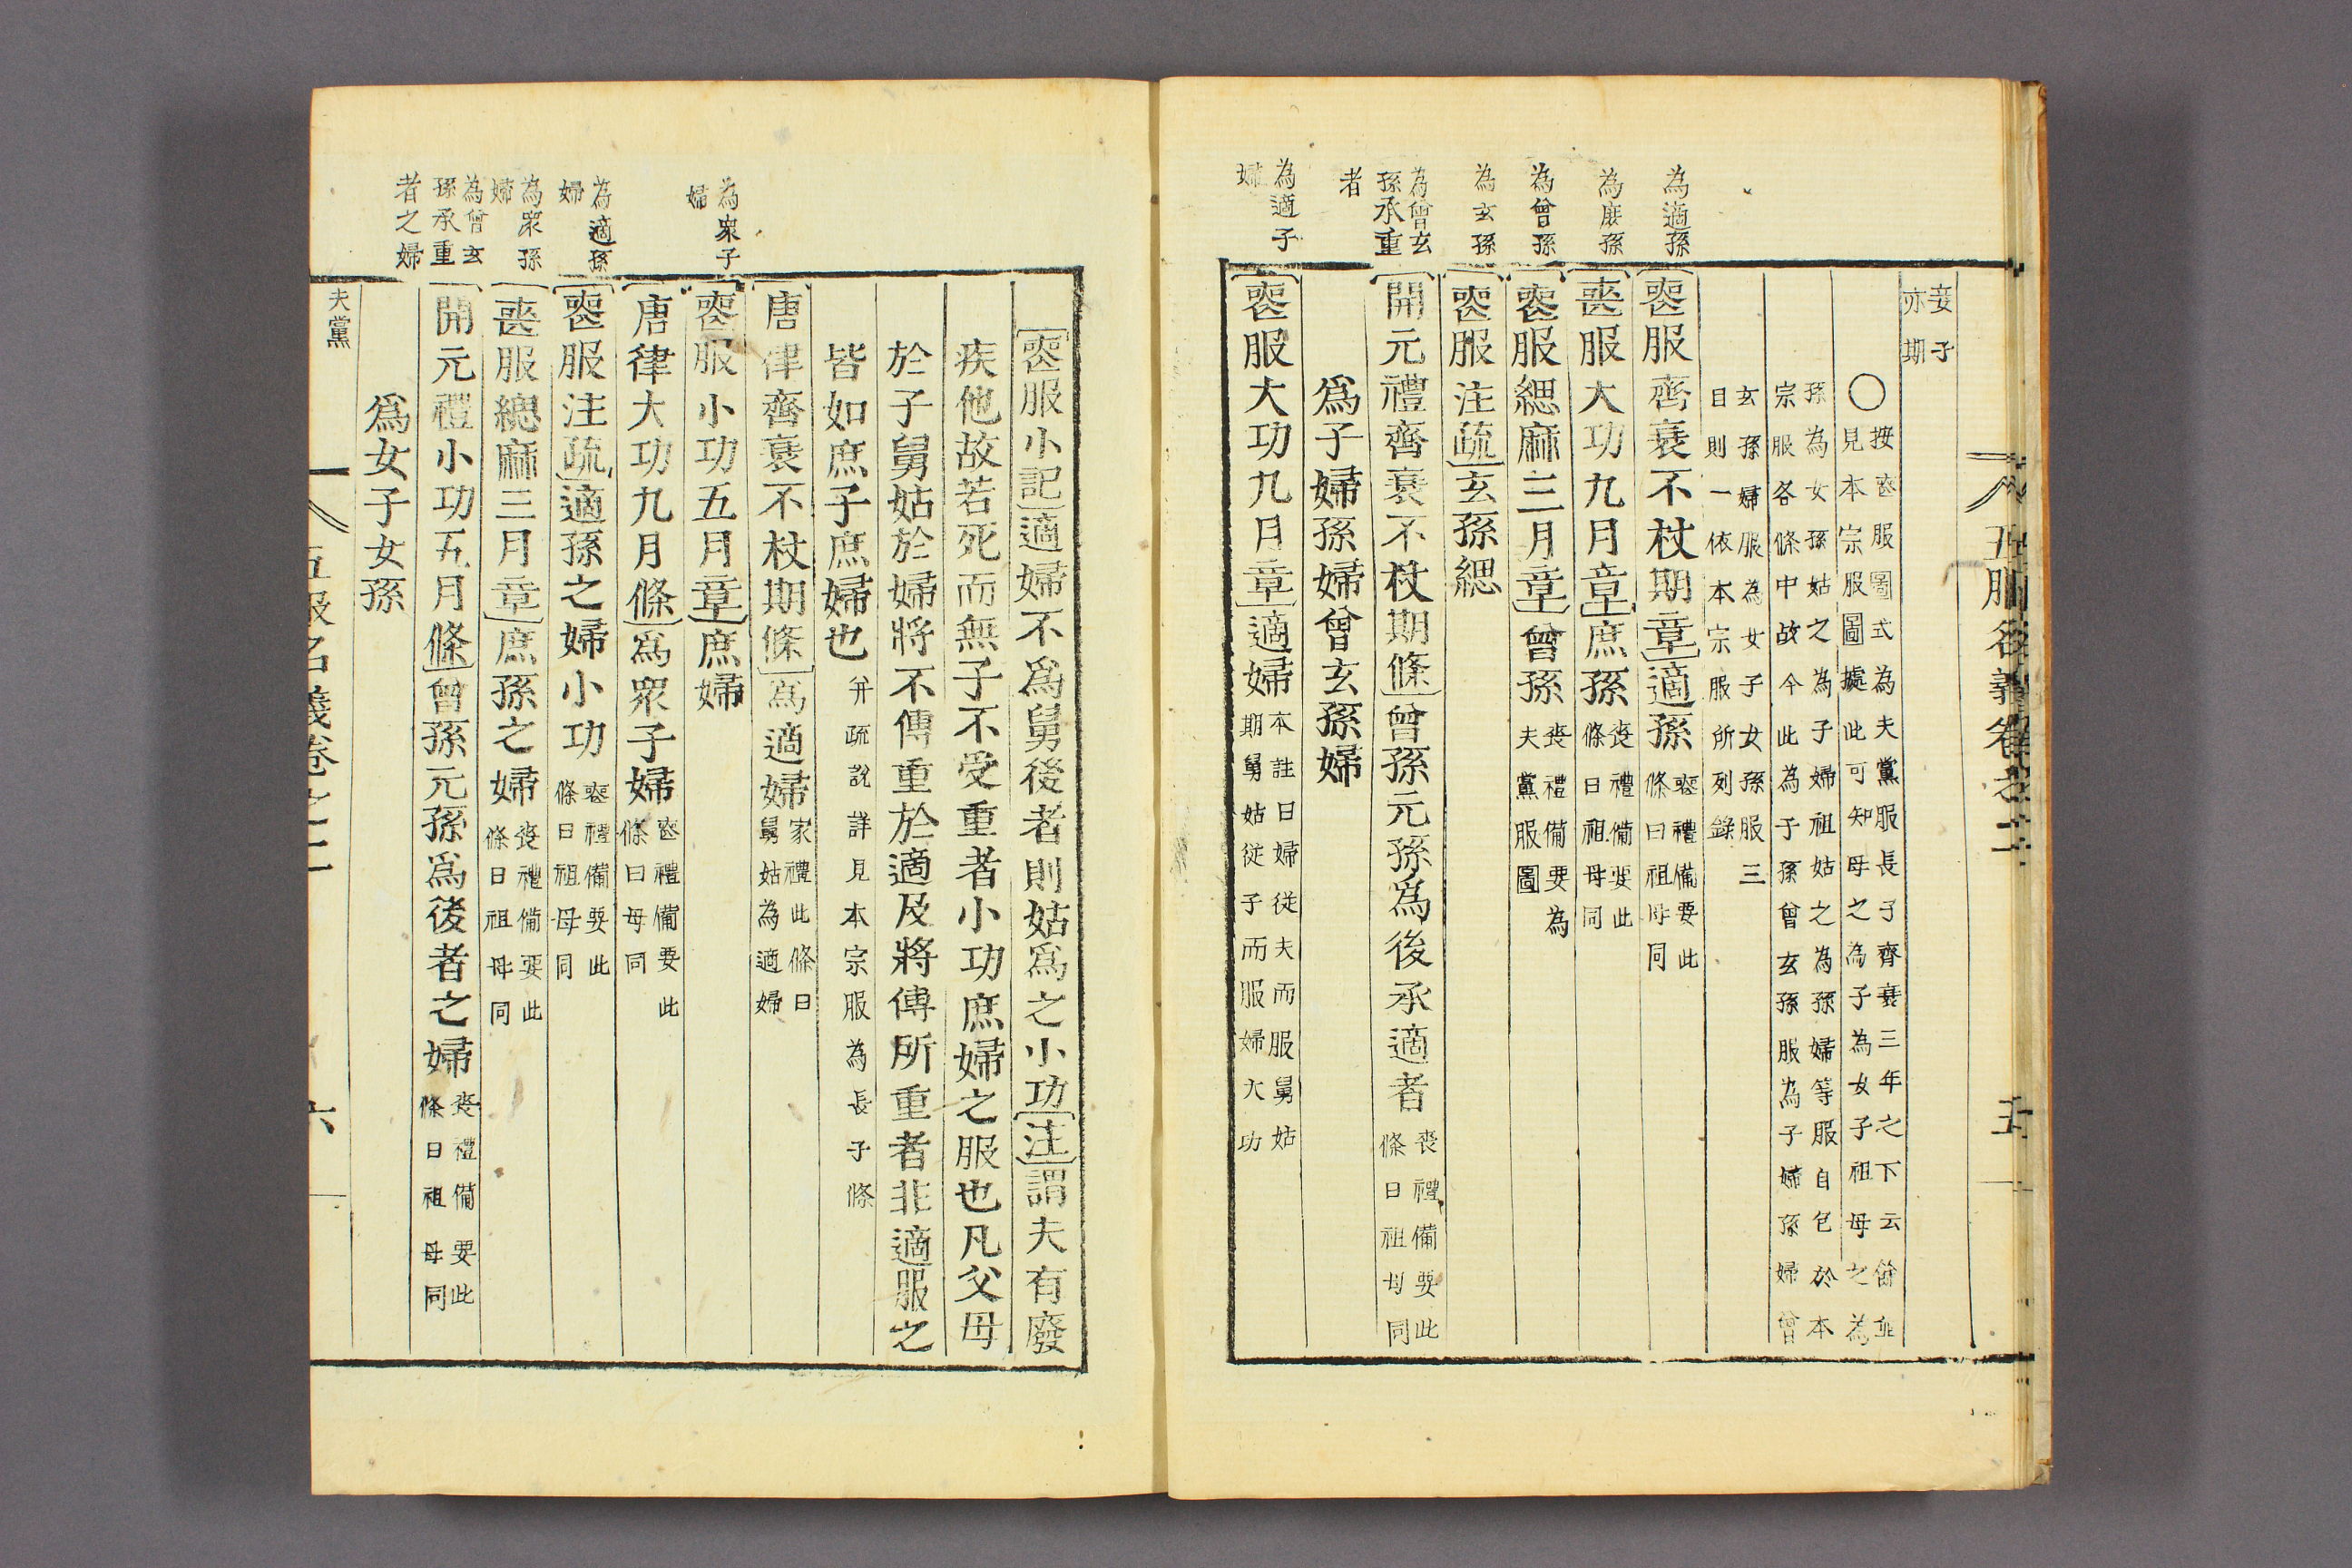 五服名義卷之二
五
妾子
亦期
○按喪服圖式為夫黨服長子齊衰三年之下云餘並
見本宗服圖據此可知母之為子為女子祖母之為
孫為女孫姑之為子婦祖姑之為孫婦等服自包於本
宗服各條中故今此為子孫曾玄孫服為子婦孫婦曾
玄孫婦服為女子女孫服三
目則一依本宗服所列錄
為適孫
喪服齊衰不杖期章適孫喪禮備要此
條曰祖母同
為庶孫
喪服大功九月章庶孫喪禮備要此
條曰祖母同
為曾孫
喪服緦麻三月章曾孫喪禮備要為
夫黨服圖
為玄孫
喪服注疏玄孫緦
為曾玄
孫承重
者
開元禮齊衰不杖期條曾孫元孫爲後承適者喪禮備要此
條曰祖母同
爲子婦孫婦曾玄孫婦
為適子
婦
喪服大功九月章適婦本註曰婦從夫而服舅姑
期舅姑從子而服婦大功
喪服小記適婦不爲舅後者則姑爲之小功注謂夫有廢
疾他故若死而無子不受重者小功庶婦之服也凡父母
於子舅姑於婦將不傳重於適及將所傳重者非適服之
皆如庶子庶婦也并疏說詳見本宗服為長子條
唐律齊衰不杖期條爲適婦家禮此條曰
舅姑為適婦
為衆子
婦
喪服小功五月章庶婦
唐律大功九月條爲衆子婦喪禮備要此
條曰母同
為適孫
婦
喪服注疏適孫之婦小功喪禮備要此
條曰祖母同
為衆孫
婦
喪服緦麻三月章庶孫之婦喪禮備要此
條曰祖母同
為曾玄
孫承重
者之婦
開元禮小功五月條曾孫元孫爲後者之婦喪禮備要此
條曰祖母同
爲女子女孫
夫黨
五服名義卷之二
六